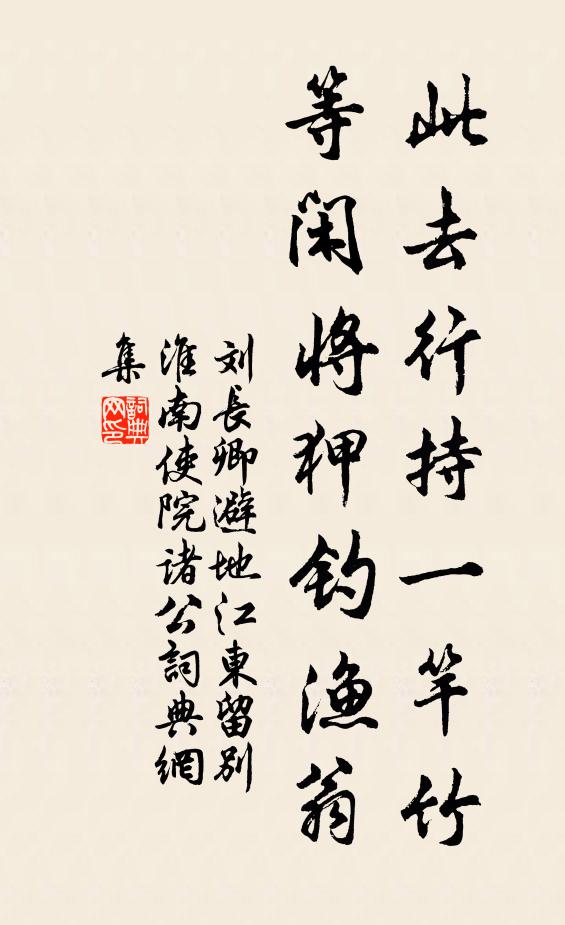 此去行持一竿竹
等闲將狎釣漁翁
刘長卿避地江東留别
淮南使院諸公詞典網
集
詞典
网印